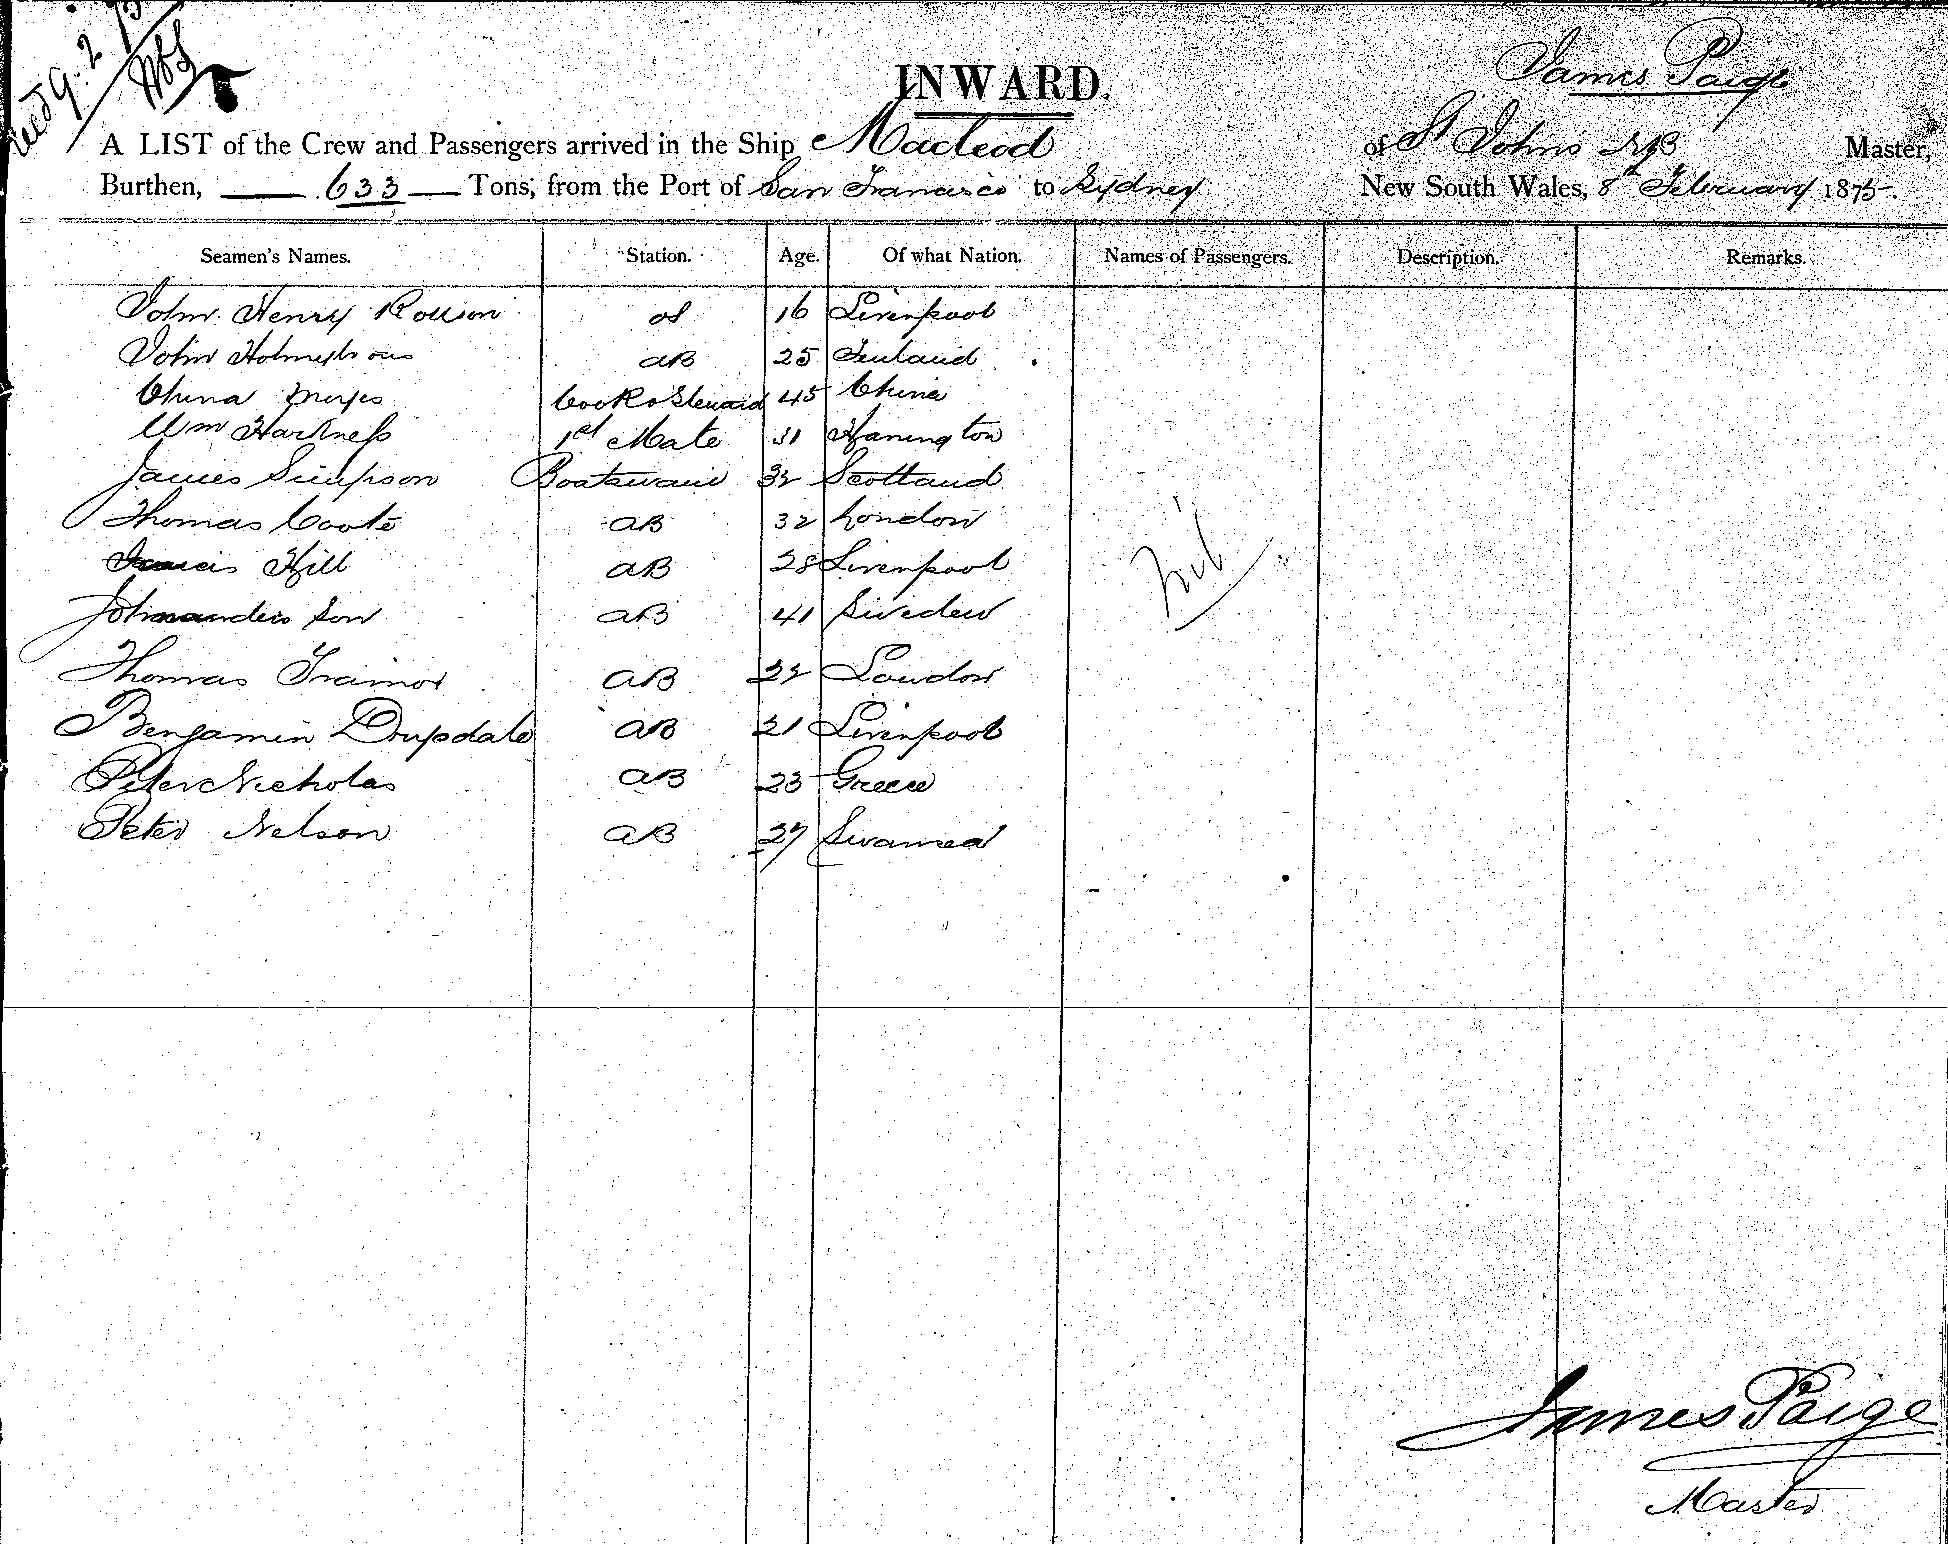 Recd 9. 2. 75
James Paige
INWARD.
A LIST of the Crew and Passengers arrived in the Ship Macleod of St Johns NB Master,
Burthen, 633 Tons, from the Port of San Francisco to Sydney New South Wales, 8th February 1875.
Seamen's Names. Station. Age. Of what Nation. Names of Passengers. Description. Remarks.
John Henry OS 16 Liverpool
John AB 25 Finland
China Cook & Steward 45 China
Wm Harkness 1st Mate 31
James Simpson Boatswain 32 Scotland
Thomas Coote AB 32 London
Francis Hill AB 28 Liverpool
John anderson AB 41 Sweden
Nil
Thomas Trainor AB 22 London
Benjamin AB 21 Liverpool
Peter Nicholas AB 23 Greece
Peter Nelson AB 27 Swansea
James Paige
Master